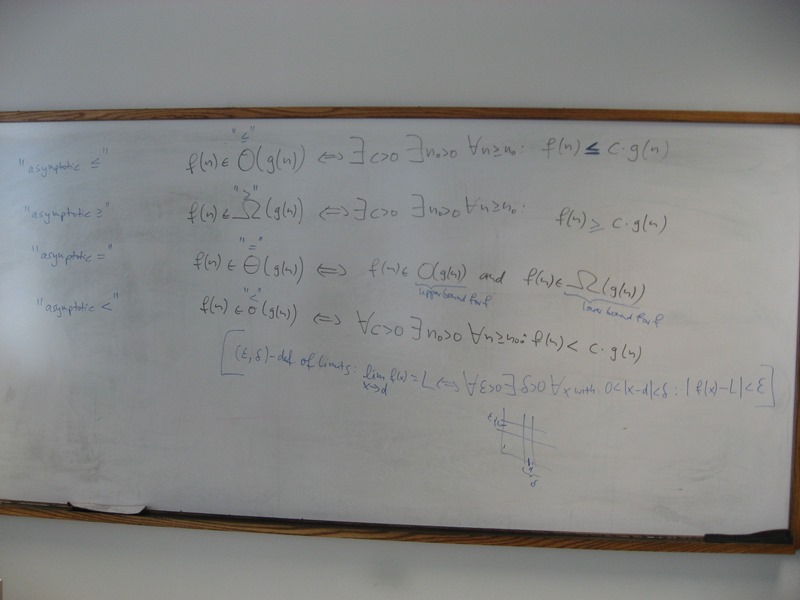 "≤"
"asymptotic ≤" f(n) ∈ O(g(n)) ⇔ ∃c>0 ∃n₀>0 ∀n≥n₀: f(n) ≤ c·g(n)
"≥"
"asymptotic ≥" f(n) ∈ Ω(g(n)) ⇔ ∃c>0 ∃n₀>0 ∀n≥n₀: f(n) ≥ c·g(n)
"="
"asymptotic =" f(n) ∈ Θ(g(n)) ⇔ f(n) ∈ O(g(n)) and f(n) ∈ Ω(g(n))
upper bound for f lower bound for f
"<"
"asymptotic <" f(n) ∈ o(g(n)) ⇔ ∀c>0 ∃n₀>0 ∀n≥n₀: f(n) < c·g(n)
[(ε,δ)-def of limits: lim f(x) = L ⇔ ∀ε>0 ∃δ>0 ∀x with 0<|x-d|<δ: |f(x)-L|<ε]
x→d
ε
δ